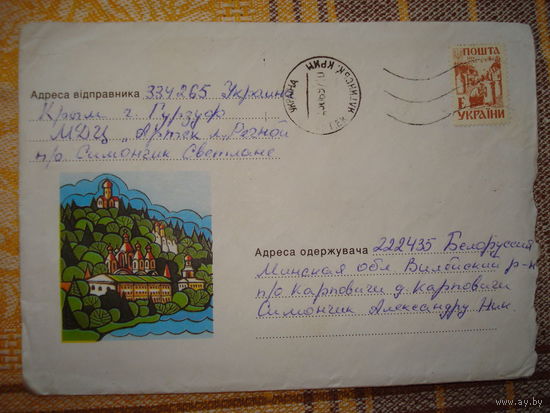 Адреса відправника 334265 Украина
Крым г. Гурзуф
МДЦ "Артек л. Речной
п/о Симончик Светлане
ПОШТА
Е
УКРАЇНИ
УКРАЇНА
КРИМ
Адреса одержувача 222435 Белоруссия
Минская обл. Вилейский р-н
п/о Карповичи д. Карповичи
Симончик Александру Ник.
www.ay.by